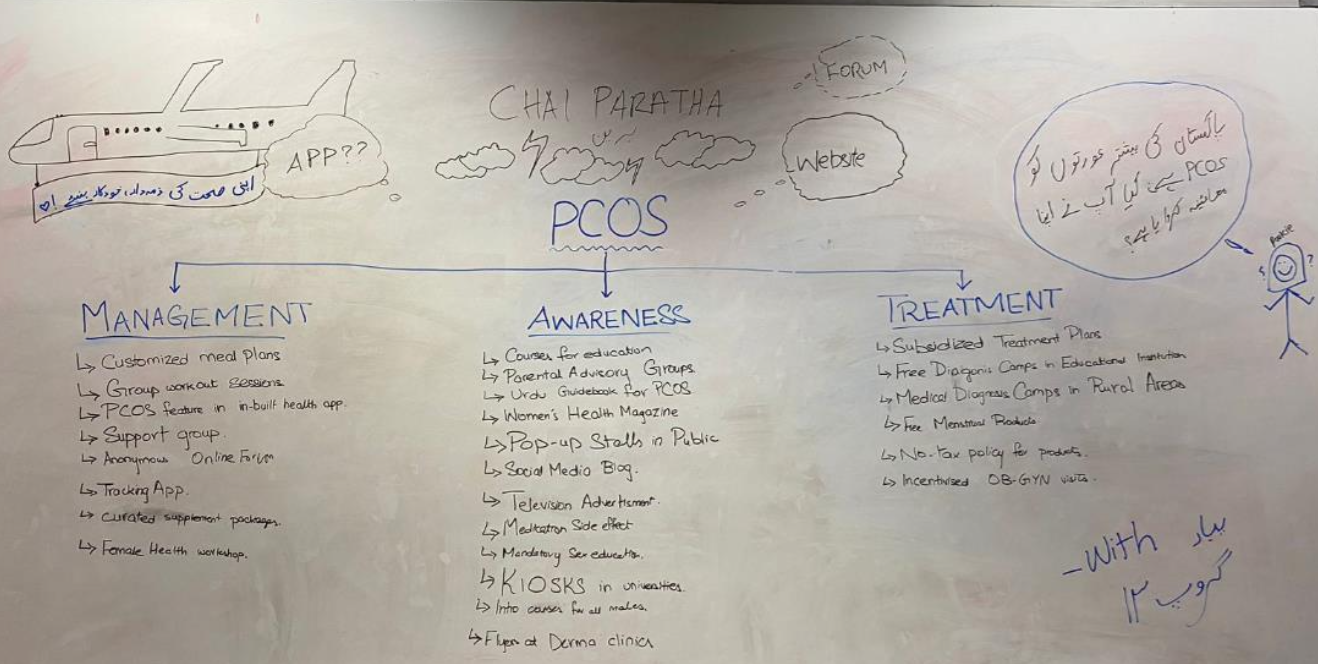 CHAI PARATHA
FORUM
APP??
Website
اپنی صحت کی ذمہ دار، خودکار بنیے!
پاکستان کی بیشتر عورتوں کو
PCOS ہے، کیا آپ نے اپنا
معائنہ کروایا ہے؟
Pookie
? ?
PCOS
MANAGEMENT
↳ Customized meal plans
↳ Group workout sessions
↳ PCOS feature in in-built health app.
↳ Support group.
↳ Anonymous Online Forum
↳ Tracking App.
↳ curated supplement packages.
↳ Female Health workshop.
AWARENESS
↳ Courses for education
↳ Parental Advisory Groups
↳ Urdu Guidebook for PCOS
↳ Women's Health Magazine
↳ Pop-up Stalls in Public
↳ Social Media Blog.
↳ Television Advertisment.
↳ Side effect
↳ Mandatory Sex education.
↳ KIOSKS in universities.
↳ Intro courses for all males.
↳ Flyers at Derma clinics
TREATMENT
↳ Subsidized Treatment Plans
↳ Free Camps in Educational Institution
↳ Medical Diagnosis Camps in Rural Areas
↳ Free Menstrual Products
↳ No-tax policy for products.
↳ Incentivised OB-GYN visits.
-With پیار
گروپ ۱۳